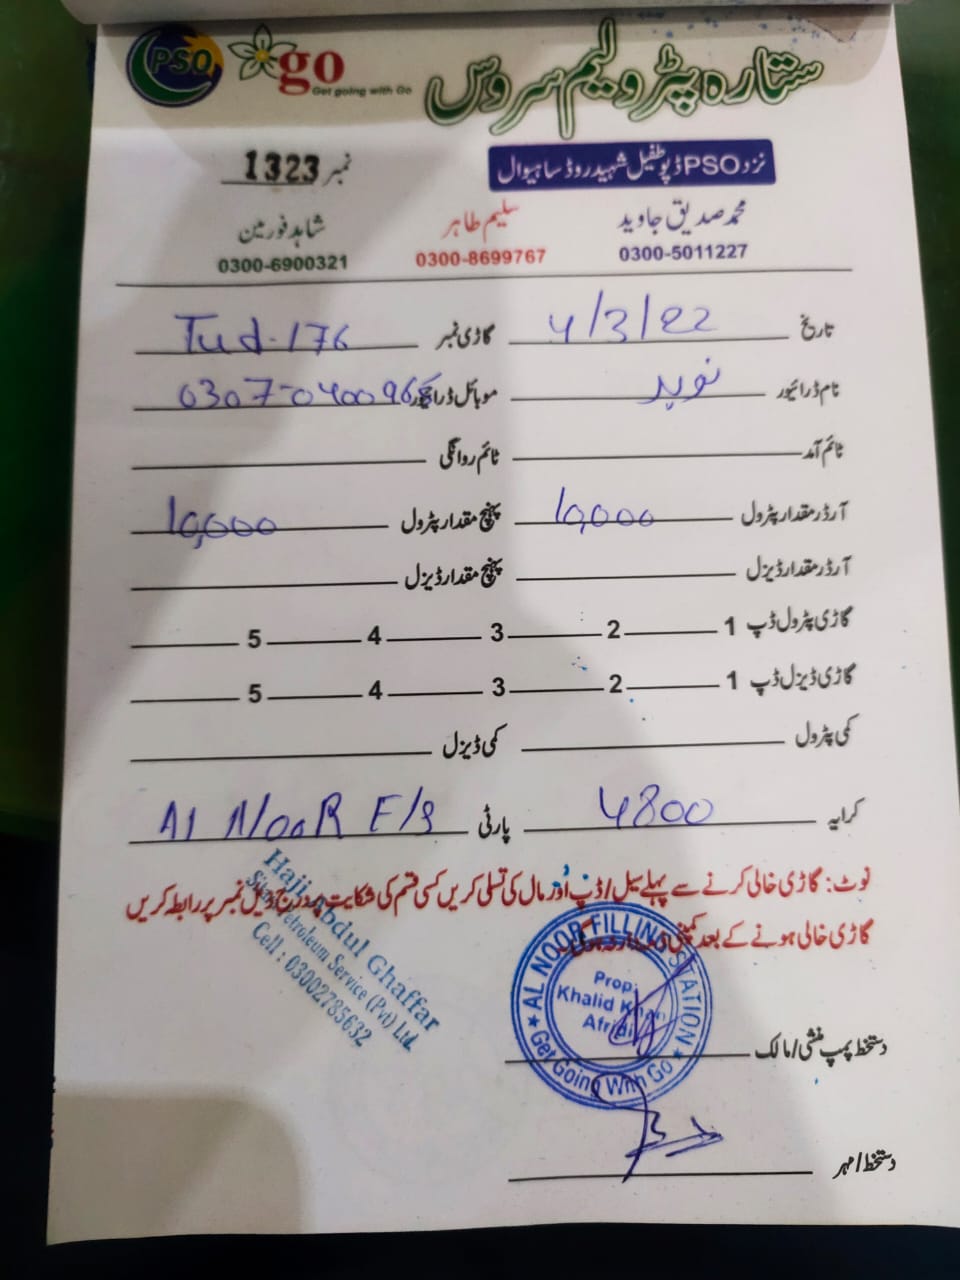 PSO go ستارہ پٹرولیم سروس
Get going with Go
نزد PSO ڈپو طفیل شہید روڈ ساہیوال
نمبر 1323
محمد صدیق جاوید سلیم طاہر شاہد فورمین
0300-5011227 0300-8699767 0300-6900321
تاریخ 4/3/22 گاڑی نمبر Tud-176
نام ڈرائیور نوید موبائل ڈرائیور 0307-0400968
ٹائم آمد ٹائم روانگی
آرڈر مقدار پٹرول 10,000 پہنچ مقدار پٹرول 10,000
آرڈر مقدار ڈیزل پہنچ مقدار ڈیزل
گاڑی پٹرول ڈپ 1 2 3 4 5
گاڑی ڈیزل ڈپ 1 2 3 4 5
کمی پٹرول کمی ڈیزل
کرایہ 4800 پارٹی Al NooR F/S
نوٹ: گاڑی خالی کرنے سے پہلے سیل/ڈپ اور مال کی تسلی کریں کسی قسم کی شکایت پر درج ذیل نمبر پر رابطہ کریں
گاڑی خالی ہونے کے بعد کمپنی
Haji Abdul Ghaffar
Petroleum Service (Pvt) Ltd.
Cell : 03002785632
AL NOOR FILLING STATION
Prop.
Khalid Khan
Afridi
Get Going With Go
دستخط پمپ منشی/مالک
دستخط/مہر